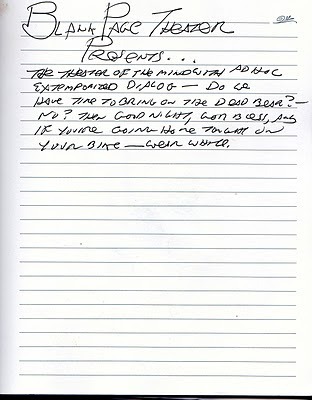 BLANK PAGE THEATER
PRESENTS...
THE THEATER OF THE MIND WITH AD HOC
EXTEMPORIZED DIALOG — DO WE
HAVE TIME TO BRING ON THE DEAD BEAR? —
NO? THEN GOOD NIGHT, GOD BLESS, AND
IF YOU'RE GOING HOME TONIGHT ON
YOUR BIKE — WEAR WHITE.